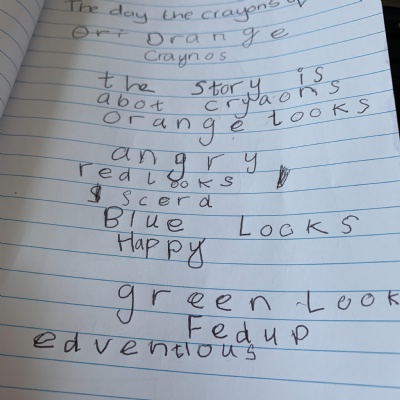 The day the crayons
Ori Orange
Craynos
the story is
abot cryaoms
orange Looks
angry
red Looks
scerd
Blue Looks
Happy
green Look
Fedup
edventious